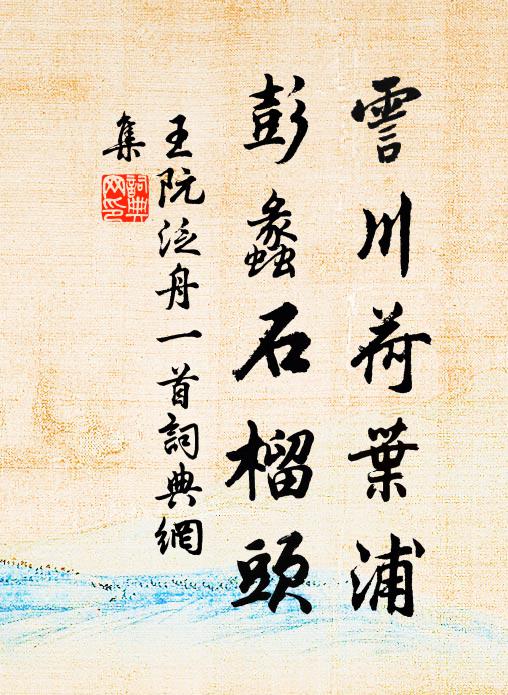 霅川荷葉浦
彭蠡石榴頭
王阮泛舟一首詞典網
集
詞典網印